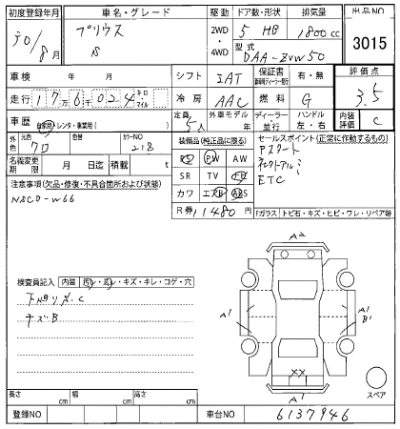 初度登録年月 車名・グレード 駆動 ドア数・形状 排気量 出品NO
30/8月 プリウス S 2WD・4WD 5 HB 1800cc 3015
型式 DAA-ZVW50
車検 年 月 シフト IAT 保証書 有・無 評価点 3.5
走行 176,024 キロ マイル 冷房 AAC 燃料 G 内装評価 C
車歴 自家用・レンタ・事業用( ) 定員 5人 外車モデル年 ディーラー・並行 ハンドル 左・右
外色 元色 クロ 色替 カラーNO 218 装備品(純正品に限る) セールスポイント(正常に作動するもの)
PS PW AW Pスタート
名義変更期限 月 日迄 積載 t SR TV ナビ
注意事項(欠品・修復・不具合箇所および状態) カワ エアB ABS ETC
NSCD-W66 R券 11480円
Fガラス トビ石・キズ・ヒビ・ウレ・リペア跡
A2
検査員記入 内装 汚レ・スレ・キズ・キレ・コゲ・穴
キズB
A1 A1
B1
XX
A1 スペア
長さ cm 幅 cm 高さ cm
登録NO 車台NO 6137946